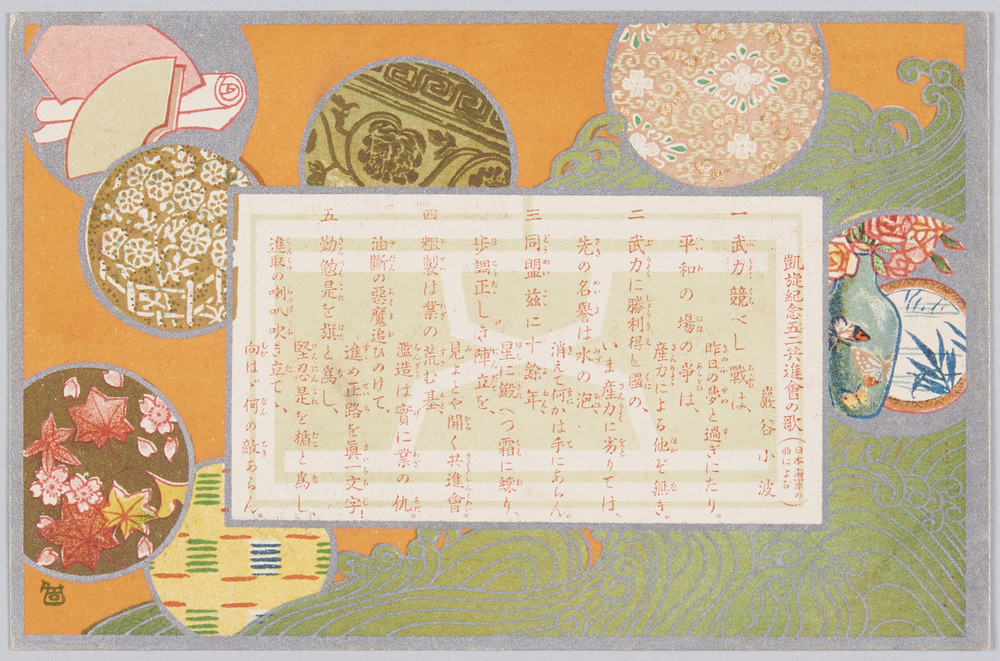 凱旋紀念五二共進會の歌(日本海軍の曲による)
巖谷小波
一 武力競べし戰は、
昨日の夢と過ぎにたり。
平和の場の爭は、
産力による他ぞ無き。
二 武力に勝利得し國の、
いま産力に劣りては、
先の名譽は水の泡、
消えて何かは手にあらん。
三 同盟茲に十餘年、
星に鍛へつ霜に練り、
歩調正しき陣立を、
見よとや開く共進會。
四 粗製は業の荒む基、
濫造は實に業の仇。
油斷の惡魔追ひのけて、
進め正路を眞一文字!
五 勤勉是を旗と爲し、
堅忍是を楯と爲し、
進取の喇叭吹き立てゝ、
向はゞ何の敵あらん。